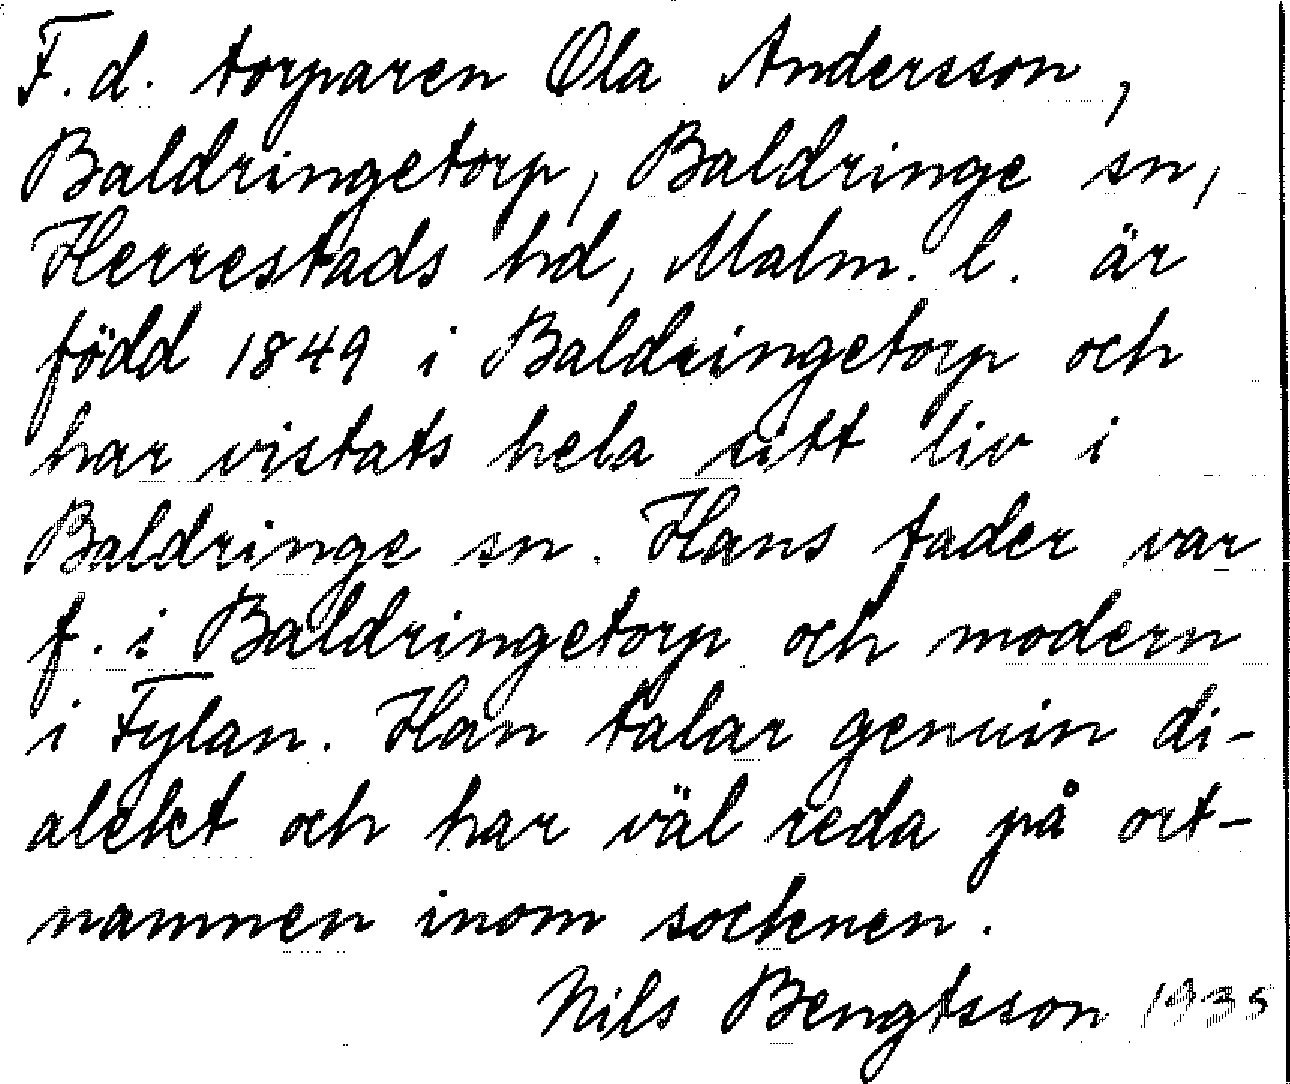 F.d. torparen Ola Andersson,
Baldringetorp, Baldringe sn,
Herrestads hd, Malm. l. är
född 1849 i Baldringetorp och
har vistats hela sitt liv i
Baldringe sn. Hans fader var
f. i Baldringetorp och modern
i Fylan. Han talar genuin di-
alekt och har väl reda på ort-
namnen inom socknen.
Nils Bengtsson 1935